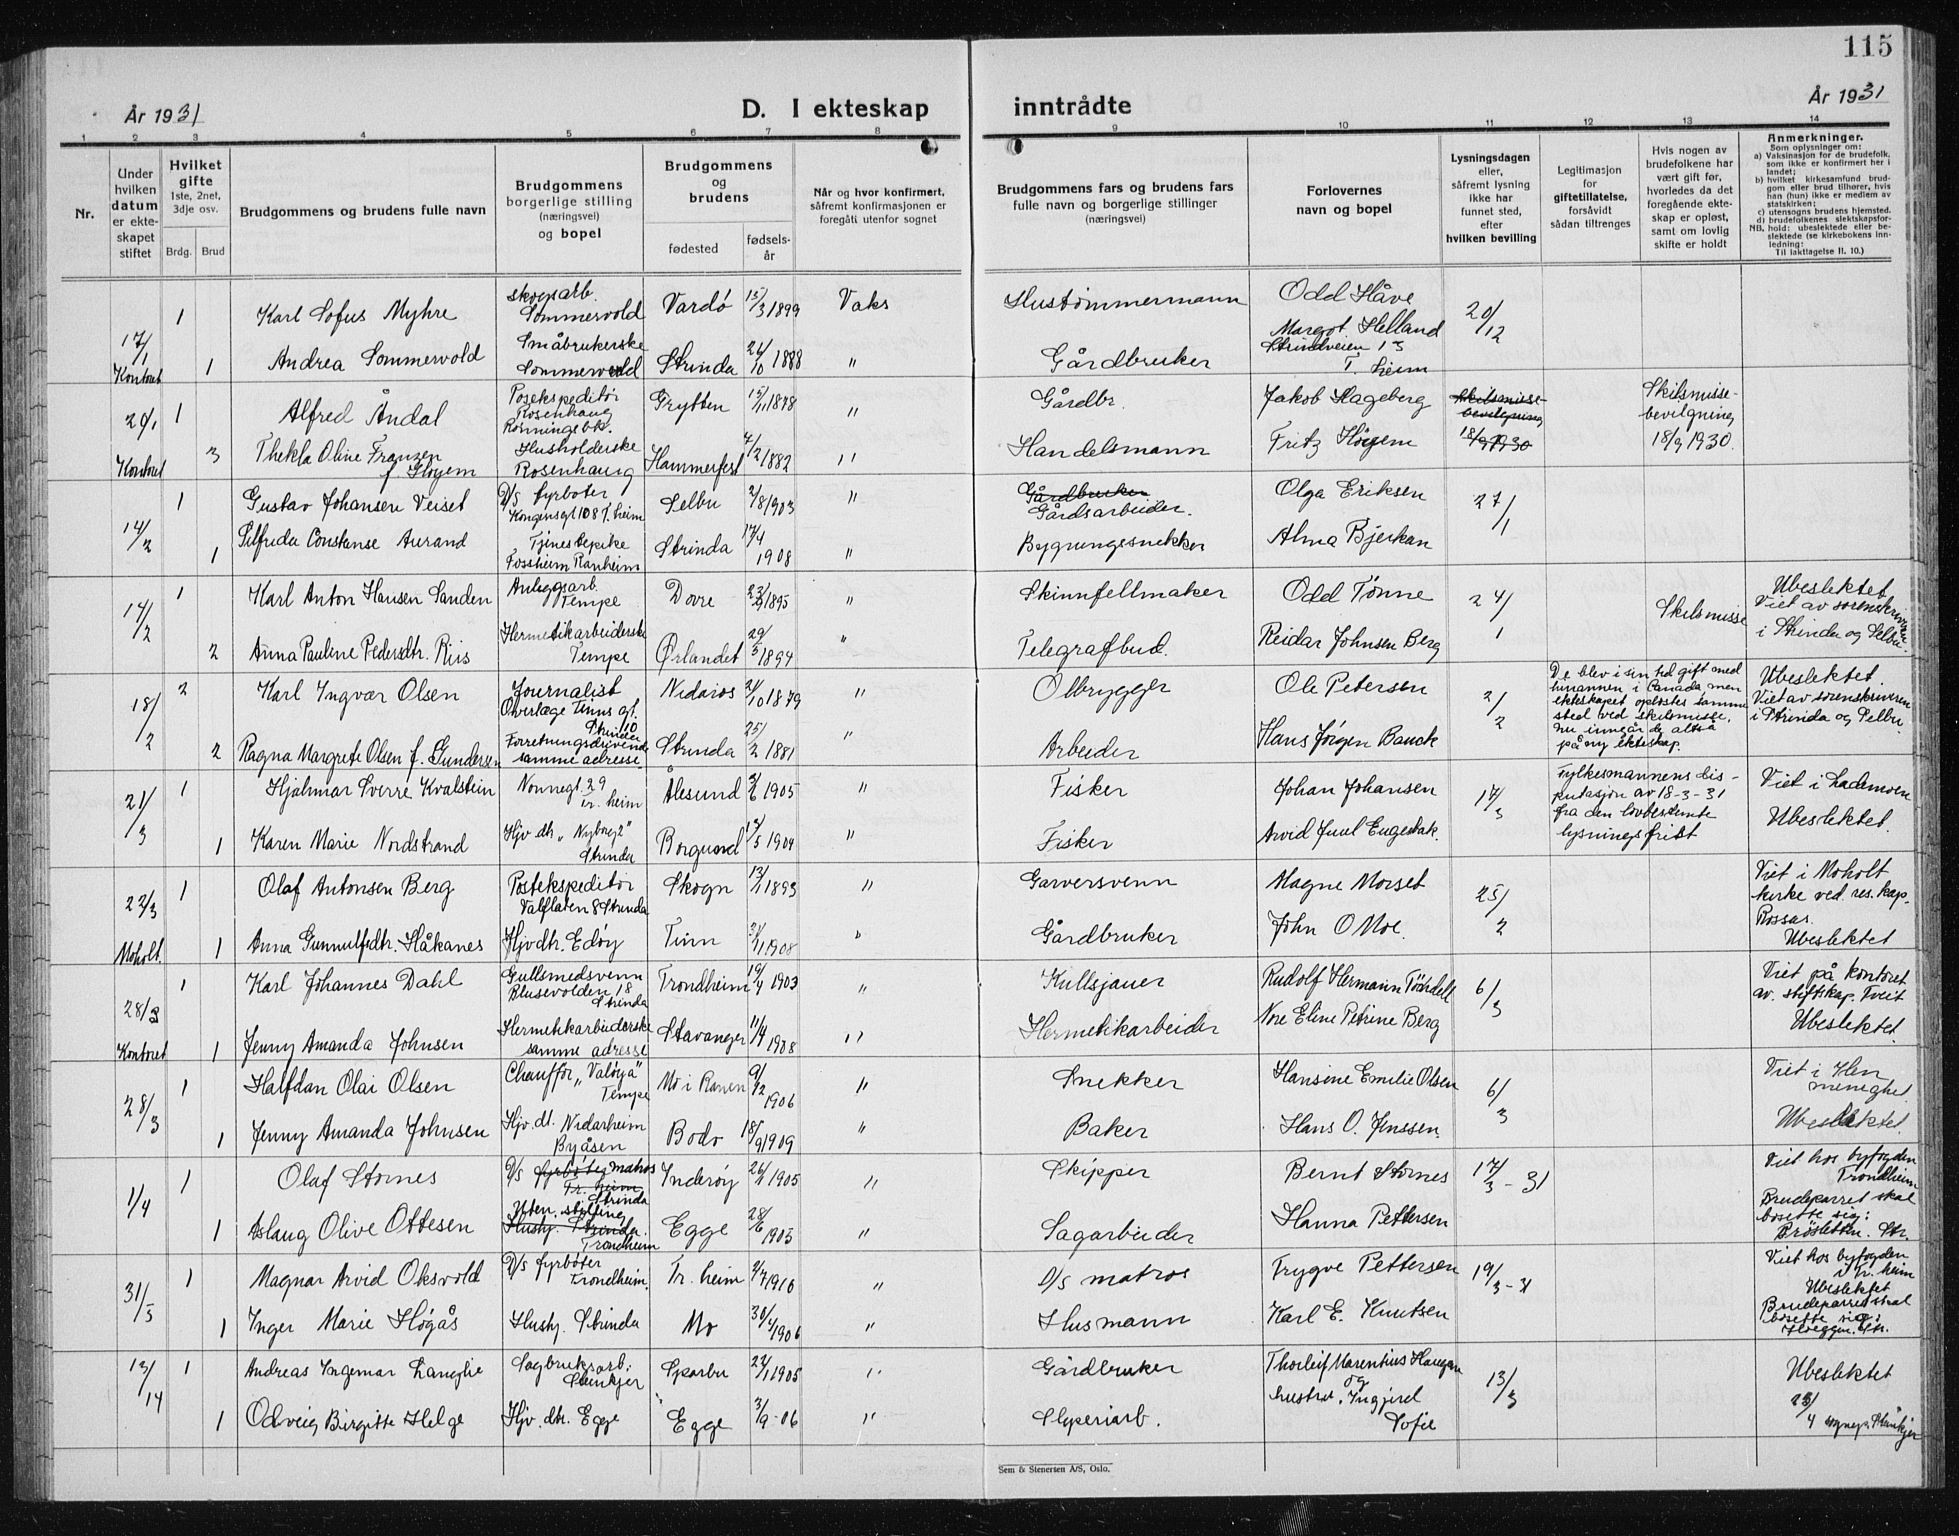 115
År 1931
D. I ekteskap inntrådte
År 1931
1 2 3 4 5 6 7 8 9 10 11 12 13 14
Nr.
Under hvilken datum er ekteskapet stiftet
Hvilket gifte 1ste, 2net, 3dje osv.
Brdg. Brud
Brudgommens og brudens fulle navn
Brudgommens borgerlige stilling (næringsvei) og bopel
Brudgommens og brudens
fødested
fødselsår
Når og hvor konfirmert, såfremt konfirmasjonen er foregåti utenfor sognet
Brudgommens fars og brudens fars fulle navn og borgerlige stillinger (næringsvei)
Forlovernes navn og bopel
Lysningsdagen eller, såfremt lysning ikke har funnet sted, efter hvilken bevilling
Legitimasjon for giftetillatelse, forsåvidt sådan tiltrenges
Hvis nogen av brudefolkene har vært gift før, hvorledes da det foregående ekteskap er opløst, samt om lovlig skifte er holdt
Anmerkninger.
Som oplysninger om:
a) Vaksinasjon for de brudefolk, som ikke er konfirmert her i landet;
b) hvilket kirkesamfund brudgom eller brud tilhører, hvis han (hun) ikke er medlem av statskirken;
c) utensogns brudens hjemsted.
d) brudefolkenes slektskapsforhold: ubeslektede eller beslektede (se kirkebokens innledning:
NB.
Til iakttagelse II. 10.)
17/1 Kontoret
1 Karl Sofus Myhre skogsarb. Sommervold Vardø 15/3 1899 Vaks Hustømmermann Odd Håve 20/12
1 Andrea Sommervold Småbrukerske Sommervold Strinda 24/10 1888 " Gårdbruker Margot Helland Strindveien 13 T. heim
20/1 Kontoret
1 Alfred Åndal Posekspeditør Rosenhaug Rønningsbk. Grytten 15/11 1878 " Gårdbr. Jakob Hageberg Skilsmissebevilgning 18/9 1930 Skilsmissebevilgning 18/9 1930
3 Thekla Oline Franzen f. Høyem Husholderske Rosenhaug Hammerfest 4/2 1882 " Handelsmann Fritz Høyem
14/2
1 Gustav Johansen Veiset D/S fyrbøter Kongensgt 108 T. heim Selbu 2/8 1903 " Gårdbruker Gårdsarbeider. Olga Eriksen 27/1
1 Silfrida Constanse Aurand Tjenestepike Fossheim Ranheim Strinda 17/4 1908 " Bygningssnekker Alma Bjerkan
14/2
1 Karl Anton Hansen Sanden Anleggsarb. Tempe Dovre 23/9 1895 " Skinnfellmaker Odd Tønne 24/1 Skilsmisse Ubeslektet Viet av sorenskriveren i Strinda og Selbu.
2 Anna Pauline Pedersdtr. Riis Hermetikarbeiderske Tempe Ørlandet 29/5 1894 " Telegrafbud. Reidar Johnsen Berg
18/2
2 Karl Ingvar Olsen Journalist Overlege Tinns gt. 10 Strinda Nidaros 21/10 1879 " Ølbrygger Ole Petersen 2/2 De blev i sin tid gift med hinannen i Canada, men ekteskapet opløstes samme sted ved skilsmisse. Nu inngår de altså på ny ekteskap. Ubeslektet. Viet av sorenskriveren i Strinda og Selbu.
2 Ragna Margrete Olsen f. Gundersen Forretningsdrivende samme adresse Strinda 25/2 1881 " Arbeider Hans Jörgen Bauck
21/3
1 Hjalmar Sverre Kvalstein Nonnegt. 29 tr. heim Ålesund 3/6 1905 " Fisker Johan Johansen 17/3 Fylkesmannens dispensasjon av 18-3-31 fra den lovbestemte lysningsfrist Viet i Lademoen Ubeslektet.
1 Karen Marie Nordstrand Hjv. dtr. "Nyborg 2" Strinda Borgund 12/5 1904 " Fisker Arvid Juul
22/3 Moholt.
1 Olaf Antonsen Berg Postekspeditør Valflaten 8 Strinda Skogn 13/1 1893 " Garversvenn Magne Morset 25/2 Viet i Moholt kirke ved res. kap. Rossas. Ubeslektet
1 Anna Gunnulfsdtr. Håkanes Hjv. dtr. Edøy Tinn 21/11 1908 " Gårdbruker John O Moe.
28/3 Kontoret
1 Karl Johannes Dahl Gullsmedsvenn Blusevolden 18 Strinda Trondheim 19/4 1903 " Kullsjauer Rudolf Hermann 6/3 Viet på kontoret av stiftskap. Tveit Ubeslektet.
1 Jenny Amanda Johnsen Hermetikkarbeiderske samme adresse Stavanger 11/4 1908 " Hermetikarbeider Nore Eline Petrine Berg
28/3
1 Halfdan Olai Olsen Chauffør, "Valöya" Tempe Mo i Ranen 9/12 1906 " Snekker Hansine Emilie Olsen 6/3 Viet i Elen menighet. Ubeslektet.
1 Jenny Amanda Johnsen Hjv. dt. Nidarheim Byåsen Bodø 18/9 1909 " Baker Hans O. Jenssen.
1/4
1 Olaf Stornes D/S fyrbøter matros Tr. heim Strinda Inderøy 26/11 1905 " Skipper Bernt Stornes 17/3-31 Viet hos byfogden Trondheim Brudeparret skal bosette sig: Brøsletten. Str.
1 Aslaug Olive Ottesen Uten stilling Hushj. Strinda. Trondheim Egge 28/6 1905 " Sagarbeider Hanna Pettersen
31/5
1 Magnar Arvid Oksvold D/S fyrbøter Trondheim. Tr. heim 2/7 1910 " D/S matros Trygve Pettersen 19/3-31 Viet hos byfogden i tr. heim Ubeslektet Brudeparret skal bosette sig:
1 Inger Marie Høgås Hushj. Strinda Mo 30/4 1906 " Husmann Karl E. Knutsen
13/14
1 Andreas Ingemar Langlie Sagbruksarb. Steinkjer Sparbu 22/1 1905 " Gårdbruker Thorleif Marentius Haugan og hustru Ingjerd Sofie 13/3 Ubeslektet 23/4 sognep. Steinkjer
1 Odveig Birgitte Helge Hjv. dtr. Egge Egge 3/9-06 " Slyperiarb.
Sem & Stenersen A/S, Oslo.